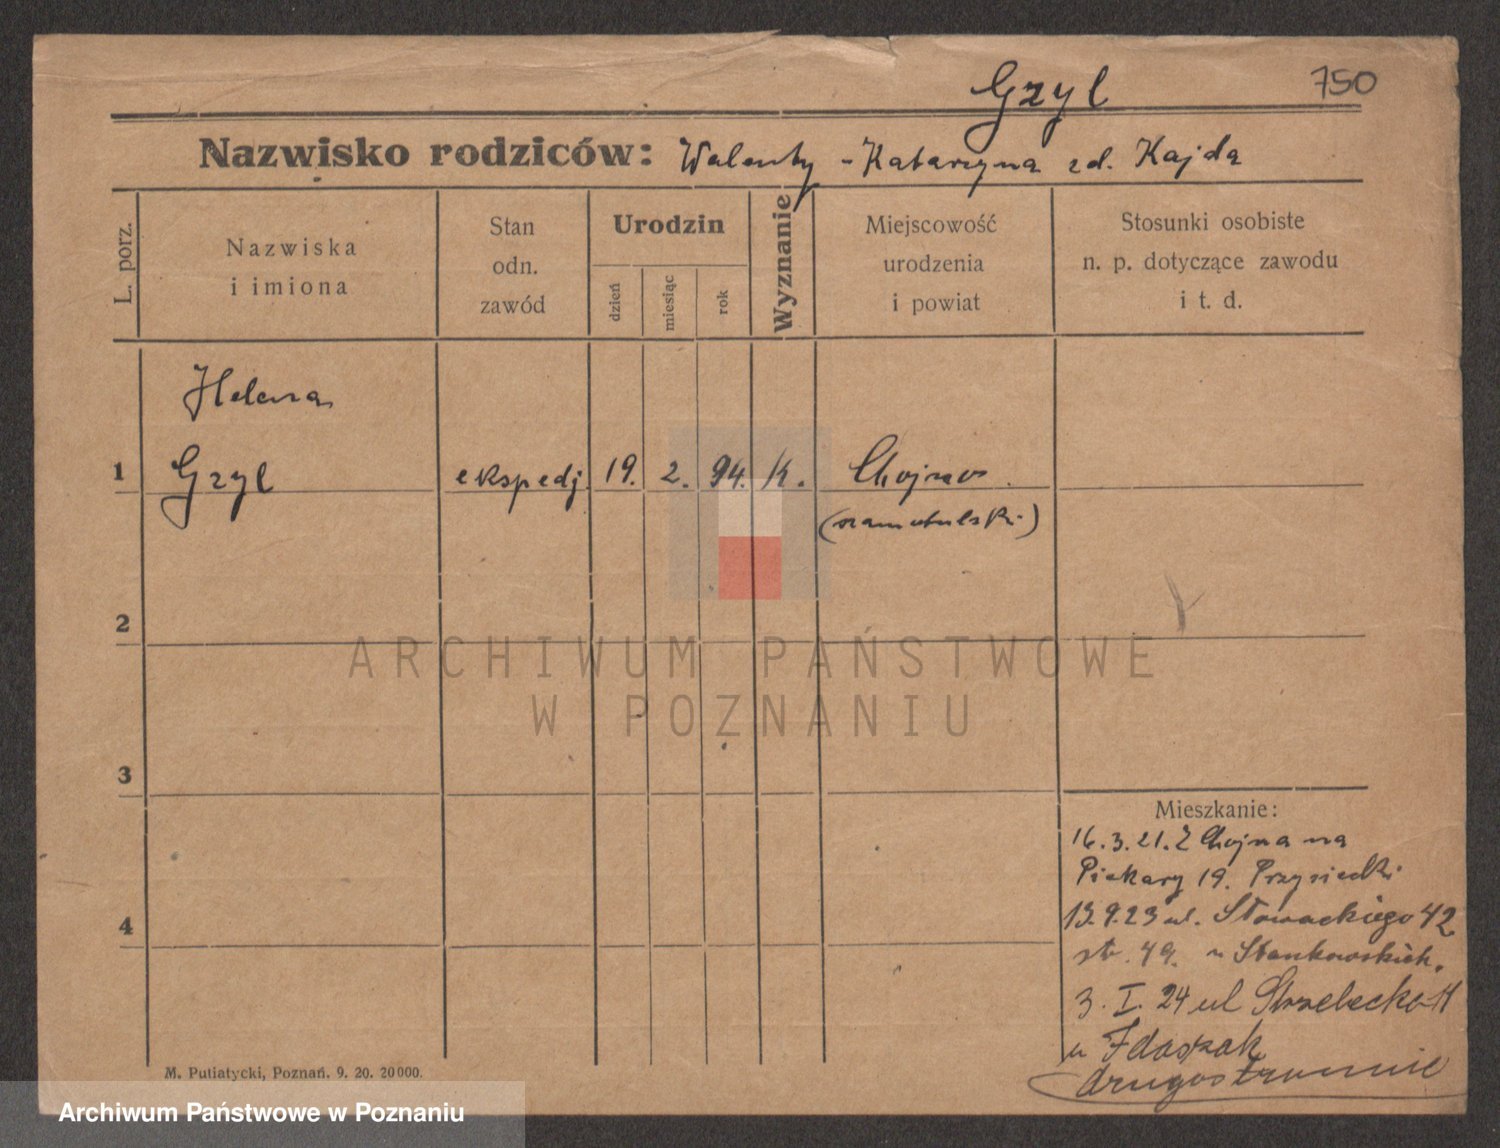 Gzyl
750
Nazwisko rodziców: Walenty - Katarzyna zd. Kajda
L. porz.
Nazwiska
i imiona
Stan
odn.
zawód
Urodzin
dzień
miesiąc
rok
Wyznanie
Miejscowość
urodzenia
i powiat
Stosunki osobiste
n. p. dotyczące zawodu
i t. d.
Helena
1 Gzyl ekspedj. 19. 2. 94. K. Chojno
(szamotulski)
2
ARCHIWUM PAŃSTWOWE
W POZNANIU
3
Mieszkanie:
16.3.21. Z Chojna na
Piekary 19. Przysiecki
4
13.9.23 ul. Słowackiego 42
str. 49. u Stankowskich.
3. I. 24 ul Strzelecka
u Idaszak
drugostronnie
M. Putiatycki, Poznań. 9. 20. 20000.
Archiwum Państwowe w Poznaniu